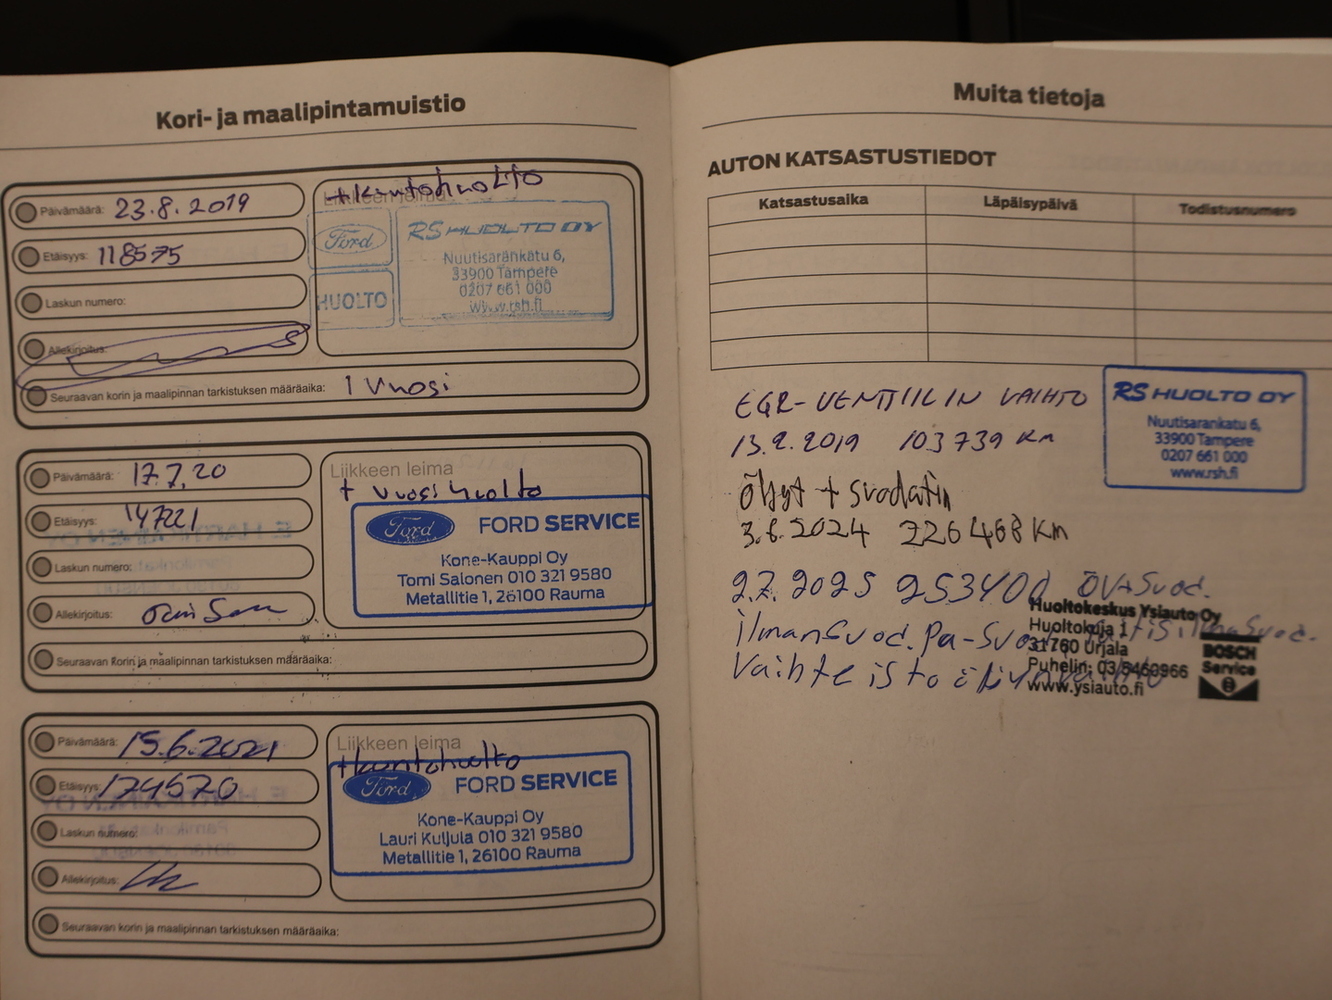 Kori- ja maalipintamuistio
Päivämäärä: 23.8.2019
Etäisyys: 118575
Laskun numero:
Allekirjoitus:
Seuraavan korin ja maalipinnan tarkistuksen määräaika: 1 vuosi
Liikkeen leima
+kuntohuolto
Ford
HUOLTO
RS HUOLTO OY
Nuutisarankatu 6,
33900 Tampere
0207 661 000
www.rsh.fi
Päivämäärä: 17.7.20
Etäisyys: 147221
Laskun numero:
Allekirjoitus:
Seuraavan korin ja maalipinnan tarkistuksen määräaika:
Liikkeen leima
+ vuosihuolto
Ford
FORD SERVICE
Kone-Kauppi Oy
Tomi Salonen 010 321 9580
Metallitie 1, 26100 Rauma
Päivämäärä: 15.6.2021
Etäisyys: 174570
Laskun numero:
Allekirjoitus:
Seuraavan korin ja maalipinnan tarkistuksen määräaika:
Liikkeen leima
+kuntohuolto
Ford
FORD SERVICE
Kone-Kauppi Oy
Lauri Kuljula 010 321 9580
Metallitie 1, 26100 Rauma
Muita tietoja
AUTON KATSASTUSTIEDOT
Katsastusaika Läpäisypäivä Todistusnumero
EGR-VENTTIILIN VAIHTO
13.2.2019 103739 KM
RS HUOLTO OY
Nuutisarankatu 6,
33900 Tampere
0207 661 000
www.rsh.fi
Öljyt + Suodatin
3.6.2024 226468 KM
2.7.2025 253400 ÖV+Suod.
ilmansuod. Pa-Suod.
Vaihteistoöljyn
Huoltokeskus Ysiauto Oy
Huoltokuja 1
31760 Urjala
Puhelin: 03/5460966
www.ysiauto.fi
BOSCH
Service